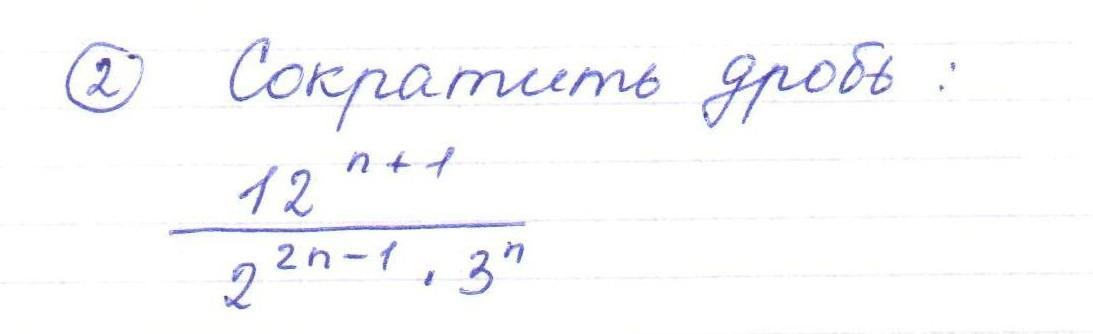 ② Сократить дробь:
12^{n+1}
2^{2n-1} · 3^n